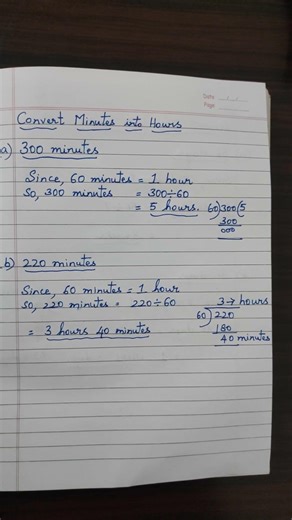 Date
Page
Convert Minutes into Hours
a) 300 minutes
Since, 60 minutes = 1 hour
So, 300 minutes = 300÷60
= 5 hours. 60)300(5
300
000
b) 220 minutes
Since, 60 minutes = 1 hour
So, 220 minutes = 220÷60
3 → hours
60)220
= 3 hours 40 minutes
180
40 minutes